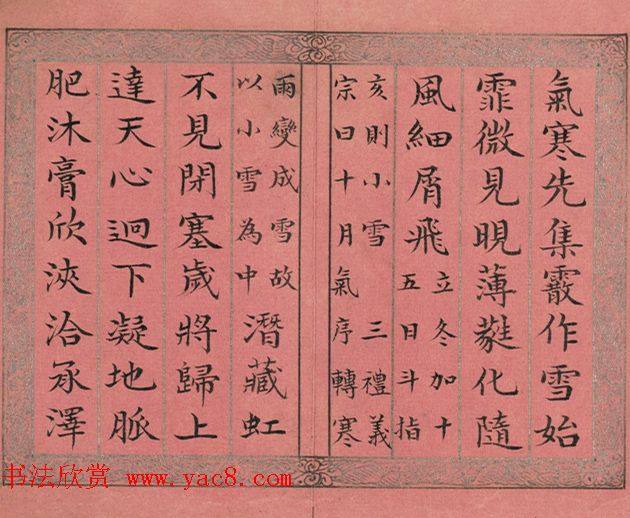 氣寒先集霰作雪始
霏微見晛薄化隨
風細屑飛
立冬加十
五日斗指
亥則小雪 三禮義
宗曰十月氣序轉寒
雨變成雪故
以小雪為中
潛藏虹
不見閉塞歲將歸上
達天心迥下凝地脈
肥沐膏欣浹洽承澤
书法欣赏 www.yac8.com